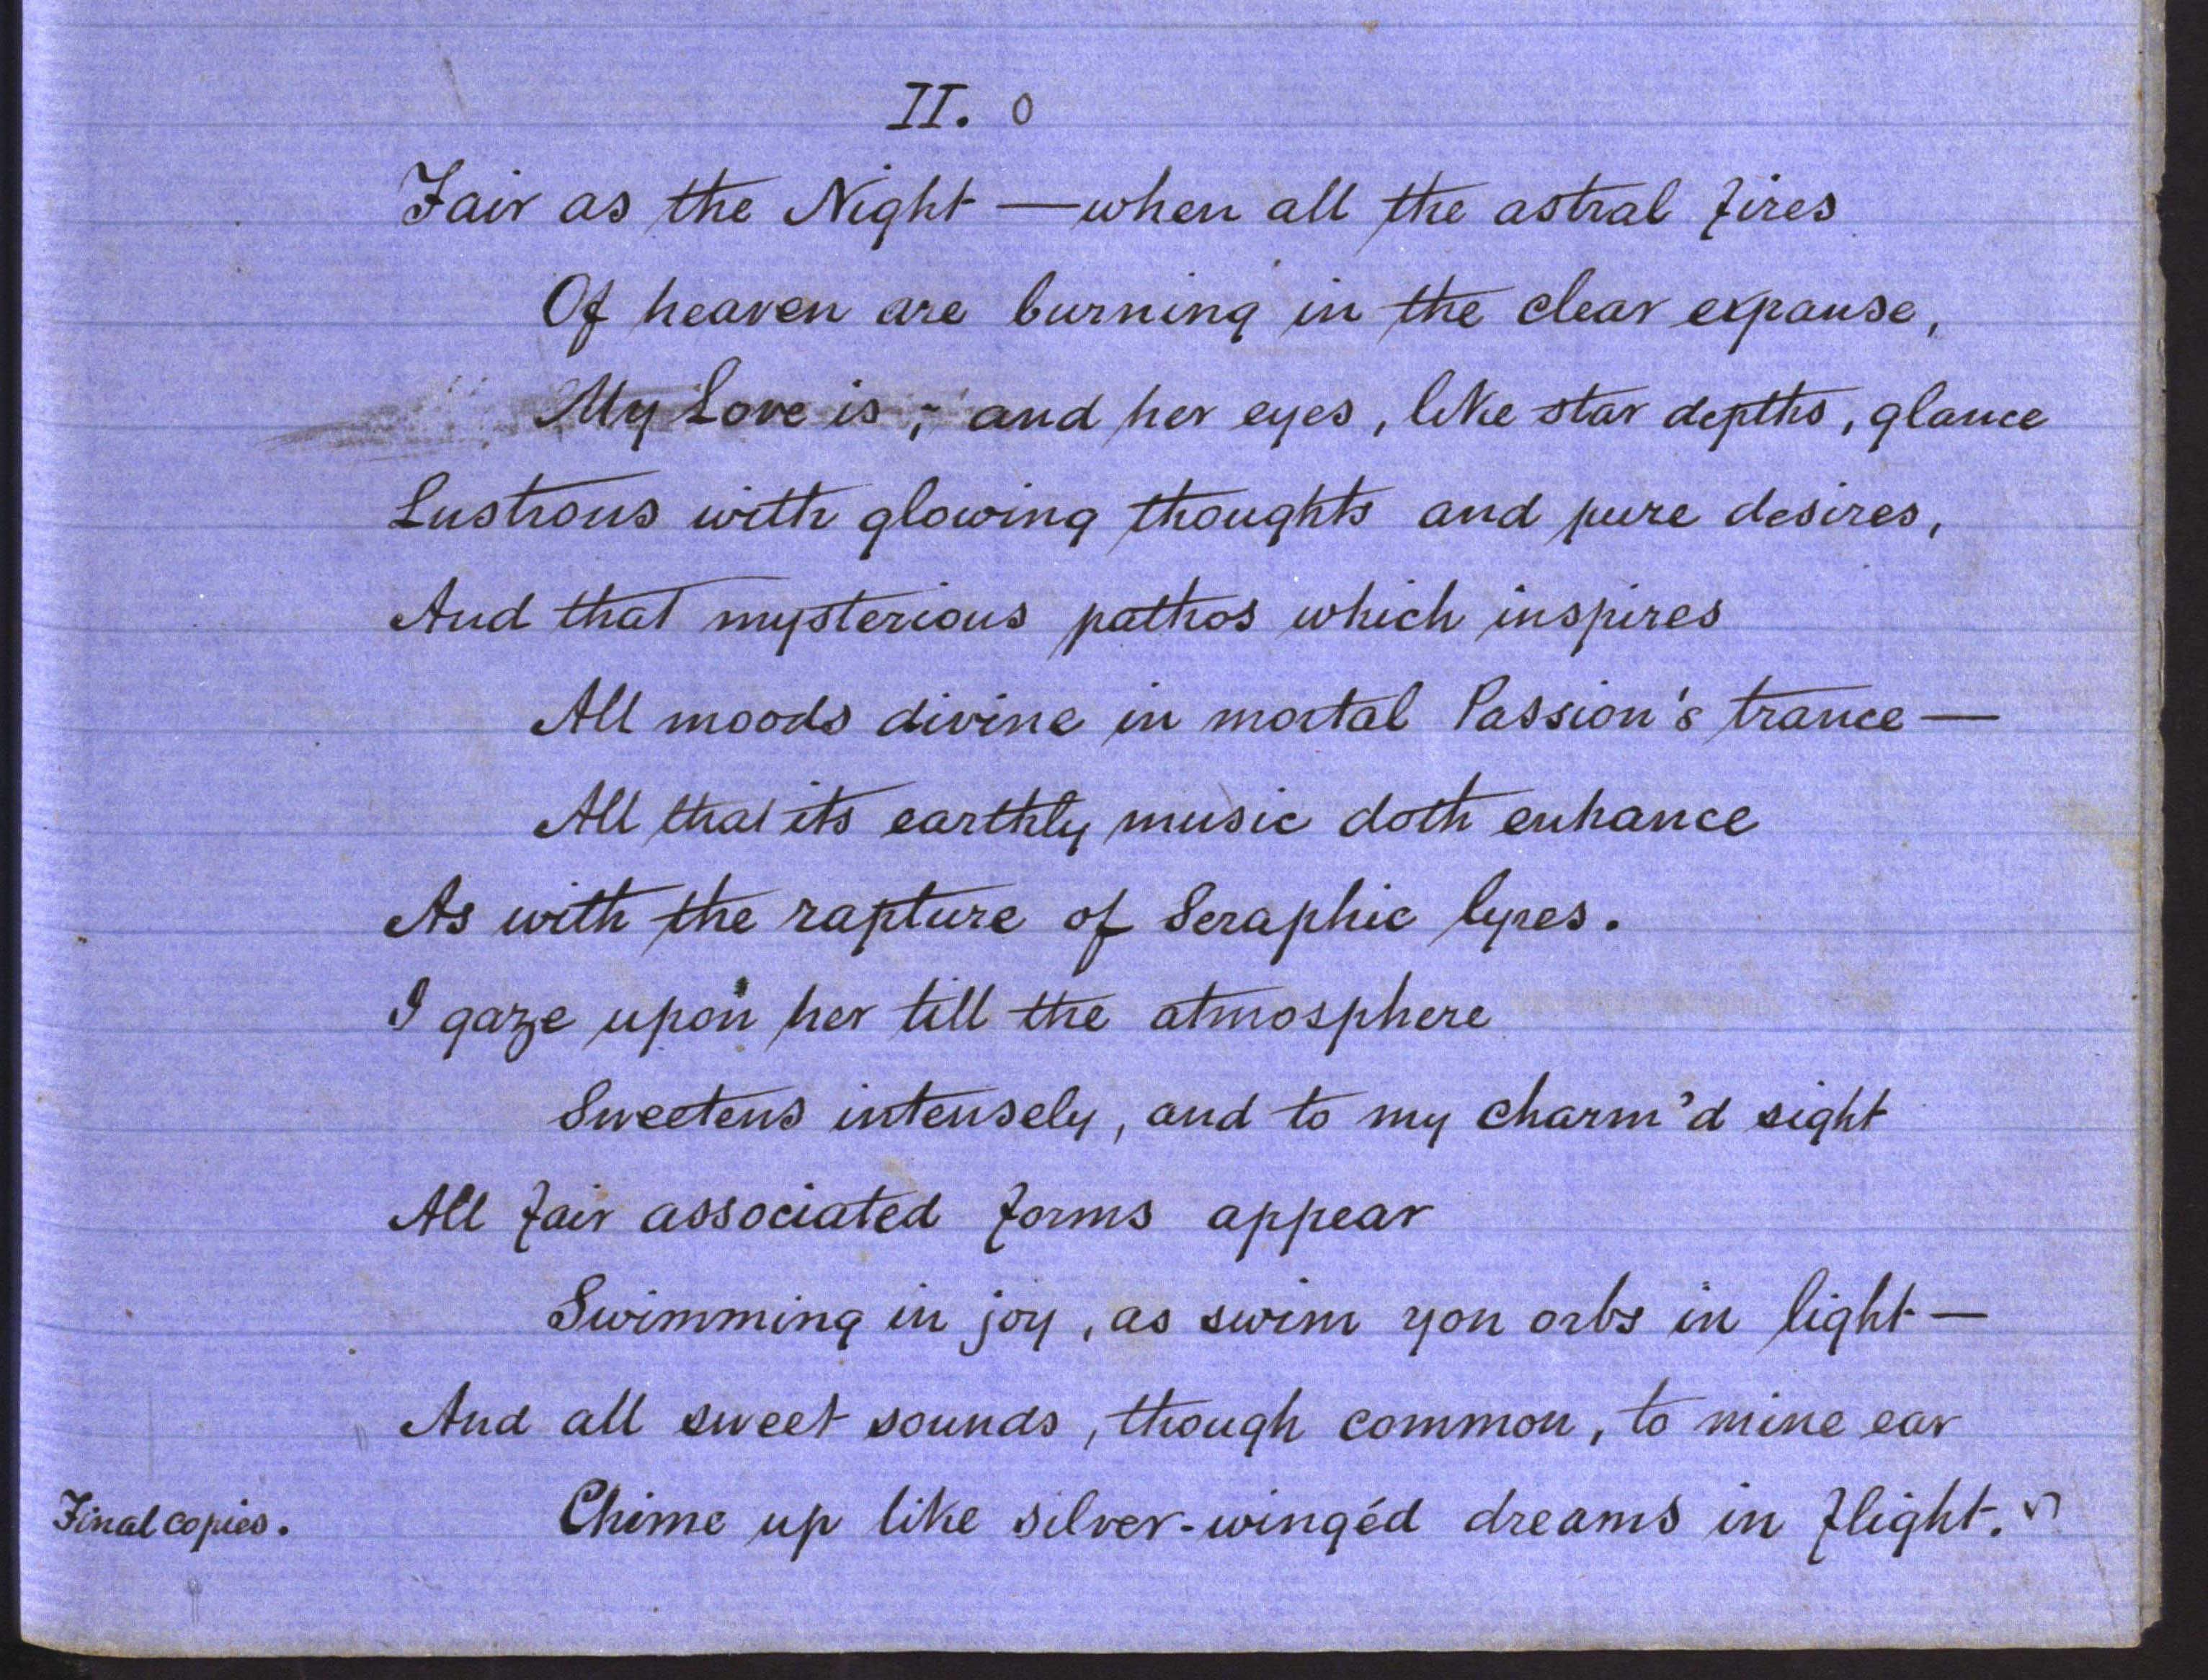 II. o
Fair as the Night — when all the astral fires
Of heaven are burning in the clear expanse,
My Love is; and her eyes, like star depths, glance
Lustrous with glowing thoughts and pure desires,
And that mysterious pathos which inspires
All moods divine in mortal Passion's trance —
All that its earthly music doth enhance
As with the rapture of Seraphic lyres.
I gaze upon her till the atmosphere
Sweetens intensely, and to my charm'd sight
All fair associated forms appear
Swimming in joy, as swim yon orbs in light —
And all sweet sounds, though common, to mine ear
Chime up like silver-wingéd dreams in flight.
Final copies.